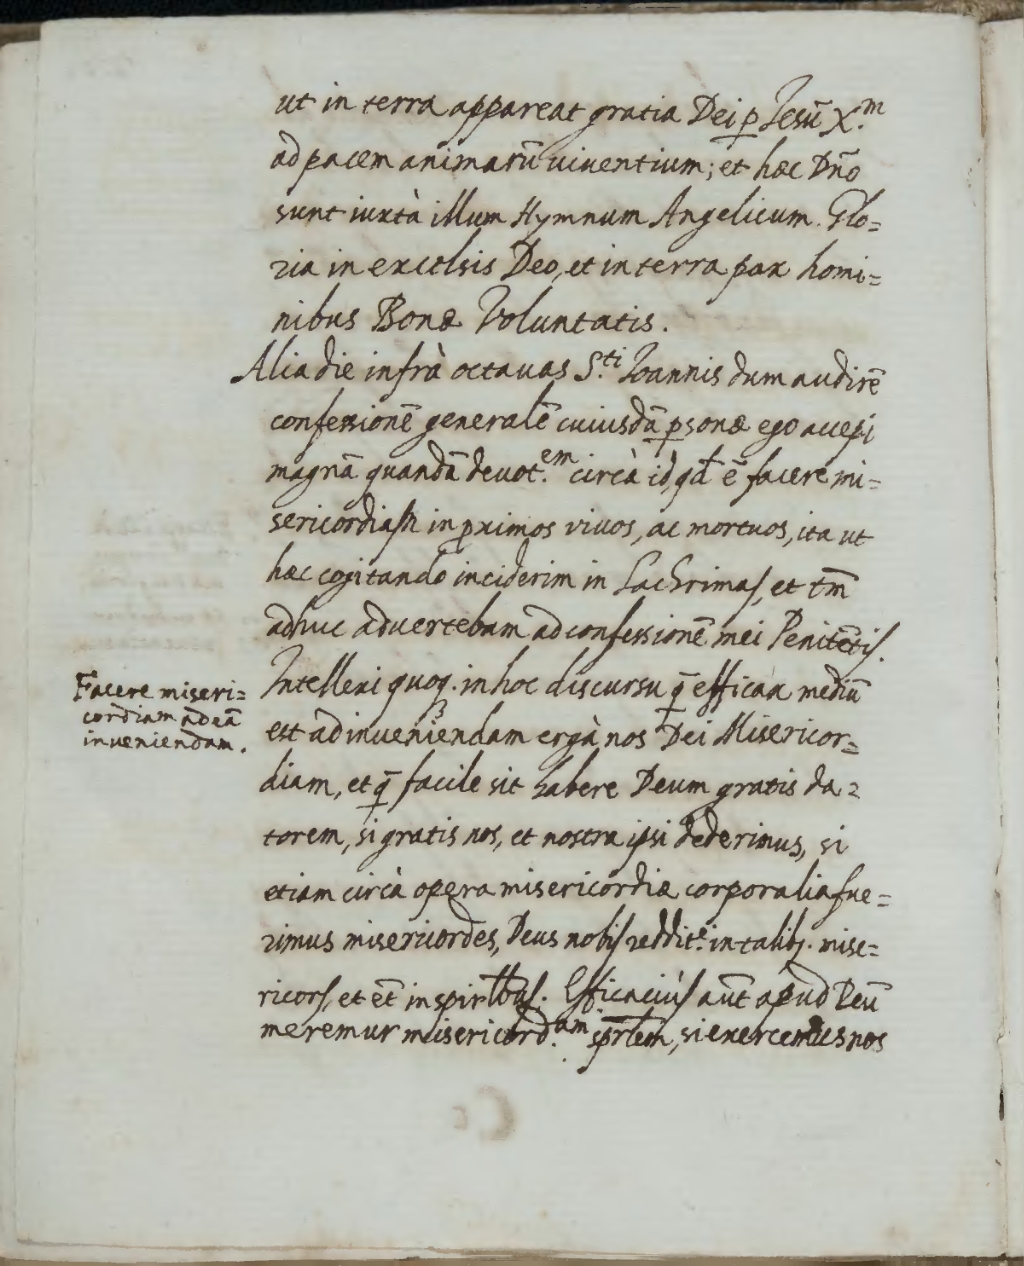 ut in terra appareat gratia Dei ꝑ Iesũ X.ᵐ
ad pacem animarũ viventium; et hæc Dño
sunt iuxtà illum Hymnum Angelicum. Glo=
ria in excelsis Deo, et in terra pax homi=
nibus Bonæ Voluntatis.
Alia die infrà octavas S.ᵗⁱ Ioannis dum audirẽ
confessionẽ generalẽ cuiusdã ꝑsonæ ego accepi
magnã quandã devot.ᵉᵐ circà id, qđ ẽ facere mi=
sericordiam in ꝓximos vivos, ac mortuos, ita ut
hæc cogitando inciderim in Lachrimas, et tm̃
adhuc advertebam ad confessionẽ mei Penitẽtis.
Facere miseri=
cordiam ad eã
inveniendam.
Intellexi quoq. in hoc discursu q̃ efficax mediũ
est ad inveniendam ergà nos Dei Misericor=
diam, et q̃ facile sit habere Deum gratis da=
torem, si gratis nos, et nostra ipsi dederimus, si
etiam circà opera misericordiæ corporalia fue=
rimus misericordes, Deus nobis reddit.ᵉ in talibꝫ. mise=
ricors, et ẽt in spirłbus. Efficaciùs aũt apud Deũ
meremur misericord.ᵃᵐ sprłem, si exercemus nos